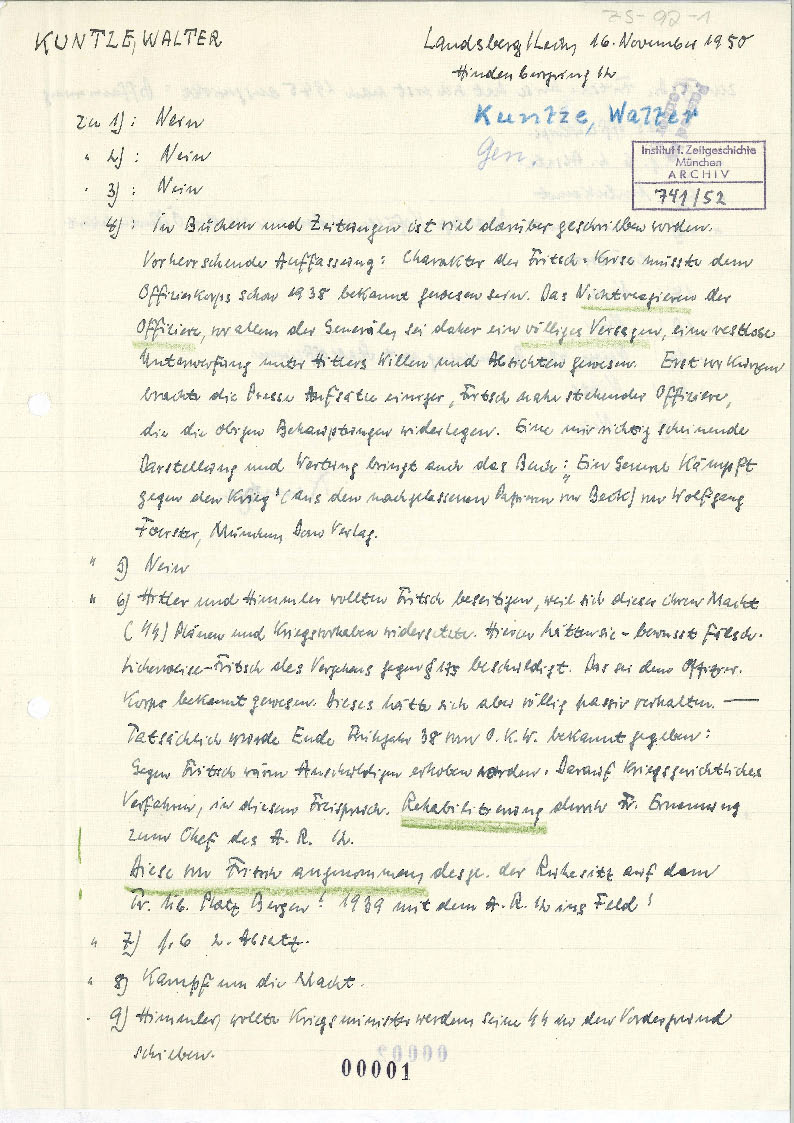 ZS-92-1
KUNTZE, WALTER
Landsberg/Lech, 16. November 1950
Hindenburgring 12
Kuntze, Walter
Gen.
Institut f. Zeitgeschichte
München
ARCHIV
741/52
zu 1): Nein
" 2): Nein
" 3): Nein
" 4): In Büchern und Zeitungen ist viel darüber geschrieben worden.
Vorherrschende Auffassung: Charakter der Fritsch-Krise müsste dem
Offizierkorps schon 1938 bekannt gewesen sein. Das Nichtreagieren der
Offiziere, vor allem der Generäle, sei daher ein völliges Versagen, eine restlose
Unterwerfung unter Hitlers Willen und Absichten gewesen. Erst vor kurzem
brachte die Presse Aufsätze einiger, Fritsch nahe stehender Offiziere,
die die obigen Behauptungen widerlegen. Eine mir richtig scheinende
Darstellung und Wertung bringt auch das Buch: "Ein General kämpft
gegen den Krieg" (aus den nachgelassenen Papieren von Beck) von Wolfgang
Foerster, München Dom Verlag.
" 5) Nein
" 6) Hitler und Himmler wollten Fritsch beseitigen, weil sich dieser ihren Macht
(SS) Plänen und Kriegsvorhaben widersetzte. Hierzu hätten sie - bewusst fälsch-
licherweise - Fritsch des Vergehens gegen § 175 beschuldigt. Das sei dem Offizier-
Korps bekannt gewesen. Dieses hätte sich aber völlig passiv verhalten. —
Tatsächlich wurde Ende Frühjahr 38 vom O.K.W. bekannt gegeben:
Gegen Fritsch wären Anschuldigen erhoben worden. Darauf kriegsgerichtliches
Verfahren, in diesem Freispruch. Rehabilitierung durch Fr. Ernennung
zum Chef des A. R. 12.
Diese von Fritsch angenommen, desgl. der Ruhesitz auf dem
Tr. Üb. Platz Bergen! 1939 mit dem A. R. 12 ins Feld!
" 7) s. 6 2. Absatz.
" 8) Kampf um die Macht.
" 9) Himmler, wollte Kriegsminister werden, seine SS in den Vordergrund
schieben.
00001